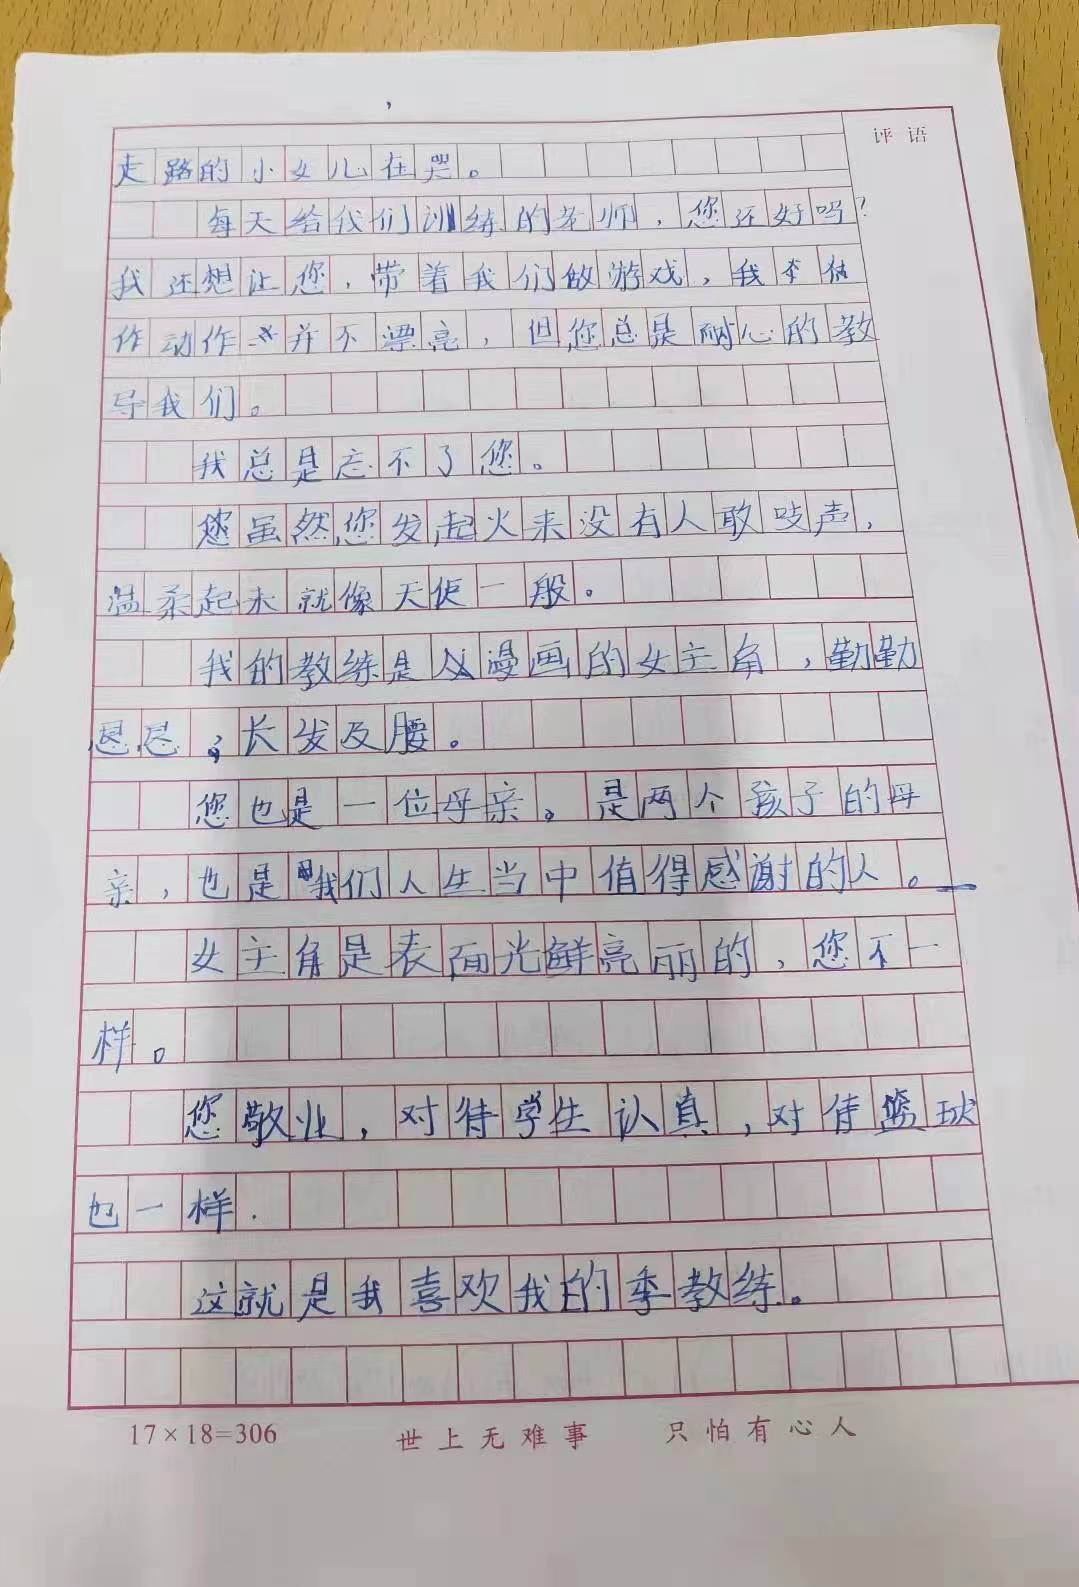 评语
走路的小女儿在哭。
每天给我们训练的老师，您还好吗？
我还想让您，带着我们做游戏，我
作动作并不漂亮，但您总是耐心的教
导我们。
我总是忘不了您。
您虽然您发起火来没有人敢吱声，
温柔起来就像天使一般。
我的教练是漫画的女主角，勤勤
恳恳，长发及腰。
您也是一位母亲。是两个孩子的母
亲，也是我们人生当中值得感谢的人。
女主角是表面光鲜亮丽的，您不一
样。
您敬业，对待学生认真，对待篮球
也一样.
这就是我喜欢我的季教练。
17×18=306 世上无难事 只怕有心人